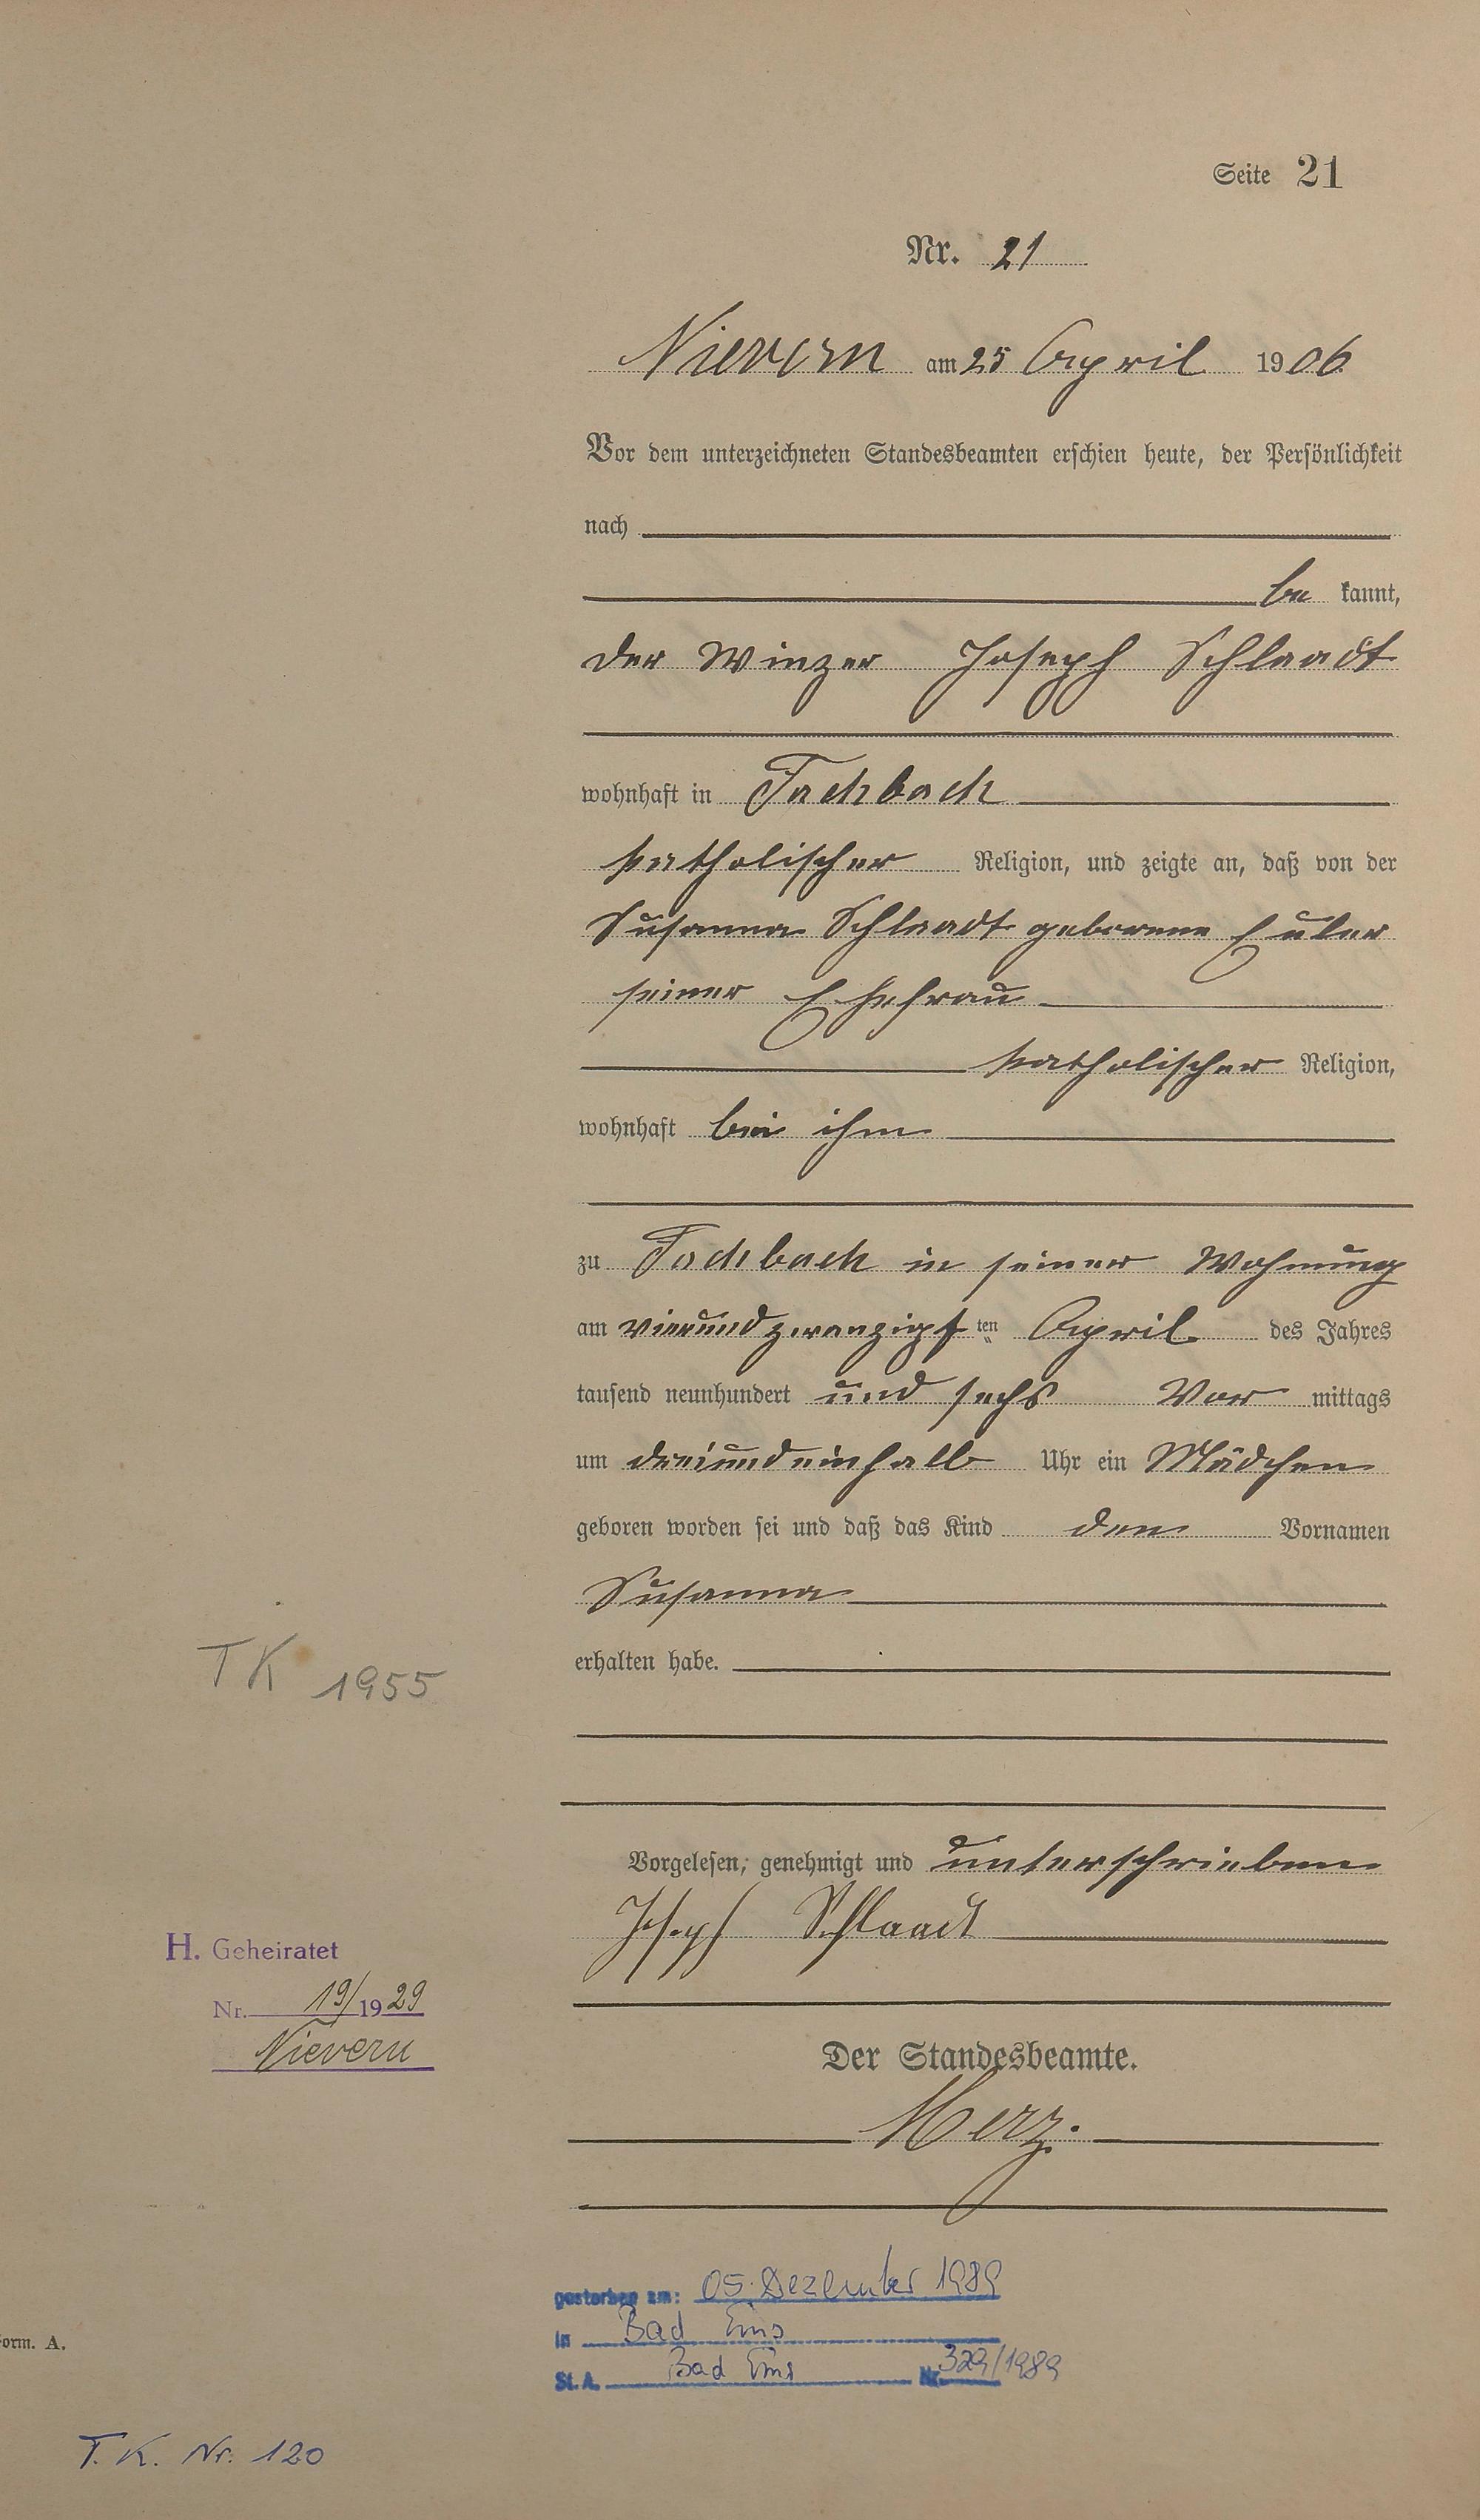 Seite 21
Nr. 21
Nievern am 25 April 1906.
Vor dem unterzeichneten Standesbeamten erschien heute, der Persönlichkeit
nach
be kannt,
der Winzer Joseph Schlaadt
wohnhaft in Fachbach
katholischer Religion, und zeigte an, daß von der
Susanna Schlaadt geborene Euler
seiner Ehefrau
katholischer Religion,
wohnhaft bei ihm
zu Fachbach in seiner Wohnung
am vierundzwanzigsten April des Jahres
tausend neunhundert und sechs Vor mittags
um dreiundeinhalb Uhr ein Mädchen
geboren worden sei und daß das Kind den Vornamen
Susanna
erhalten habe.
TK 1955
Vorgelesen, genehmigt und unterschrieben
Joseph Schlaadt
H. Geheiratet
Nr. 19/1929
Nievern
Der Standesbeamte.
Merz.
gestorben am: 05. Dezember 1989
in Bad Ems
St. A. Bad Ems Nr. 329/1989
Form. A.
T. K. Nr. 120